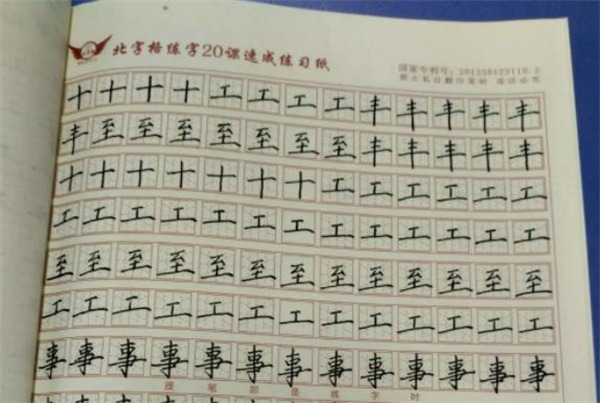 北字格练字20课速成练习纸
国家专利号：201330123110.2
禁止私自翻印复制 违法必究
十十十十工工工工丰丰丰丰丰
丰至至至至至至至丰丰丰丰丰
十十十十十十十工工工工工工
工工工工工工工工工工工工工
至至至至至至至至至至至至至
工工工工工工工工工工工工工
事事事事事事事事事事事事事
提笔即是练字时